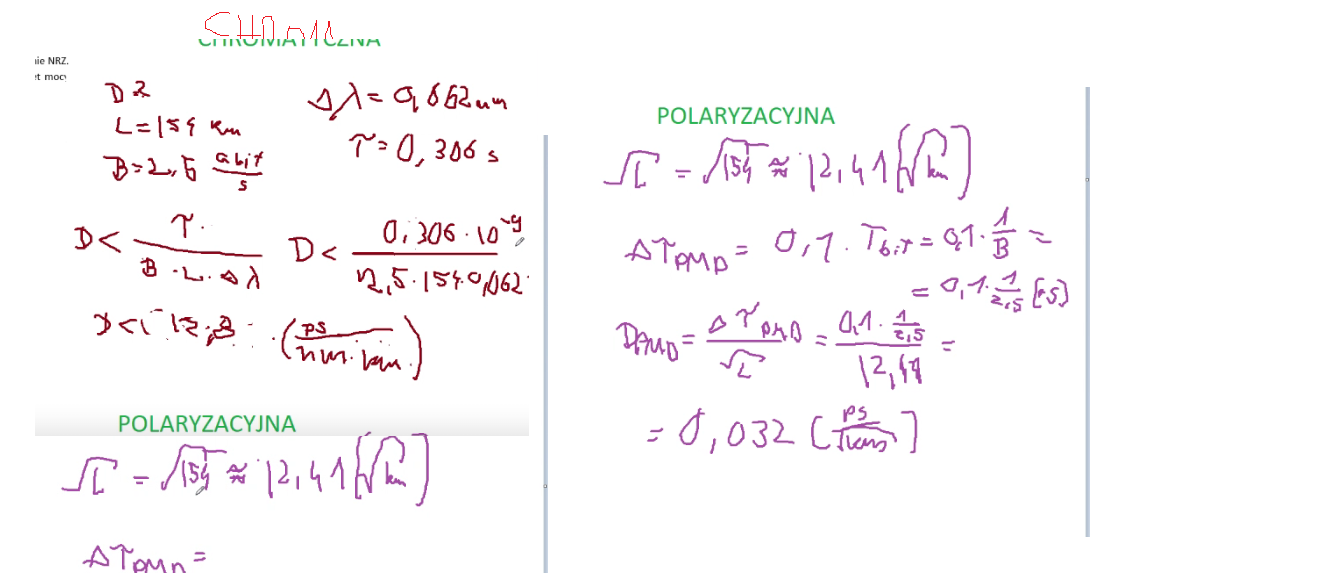 CHROMATYCZNA
ie NRZ.
et mocy
D
L=154 km
B=2,5 Gbit/s
Δλ=0,062nm
τ=0,306 s
D< τ / B·L·Δλ
D< 0,306·10⁻⁹ / 2,5·154·0,062
D< 12,8 (ps / nm·km)
POLARYZACYJNA
√L = √154 ≈ 12,41 [√km]
ΔTPMD =
POLARYZACYJNA
√L = √154 ≈ 12,41 [√km]
ΔTPMD = 0,1·Tbit = 0,1·1/B =
= 0,1·1/2,5 [ns]
DPMD = ΔτPMD / √L = 0,1·1/2,5 / 12,41 =
= 0,032 [ps/√km]